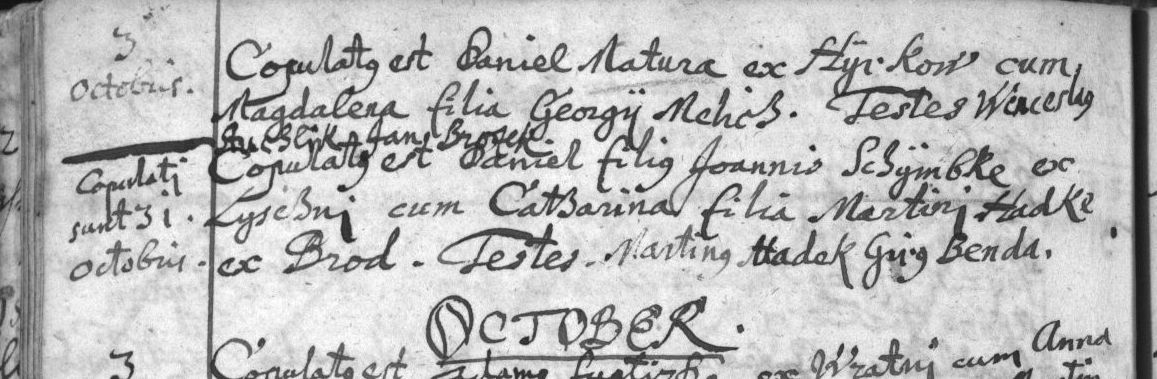 3
Octobris.
Copulatꝯ est Daniel Matura ex Hÿrkow cum
Magdalena filia Georgij Melich. Testes Wenceslaꝯ
Jan Brosek
Copulatj
sunt 31.
Octobris.
Copulatꝯ est Daniel filiꝯ Joannis Schÿmbke ex
Lyschnj cum Catharina filia Martinj Hadke
ex Brod. Testes. Martinꝯ Hadek Girg Benda.
OCTOBER.
3
Copulatꝯ est Adamꝯ ex Wratnj cum Anna